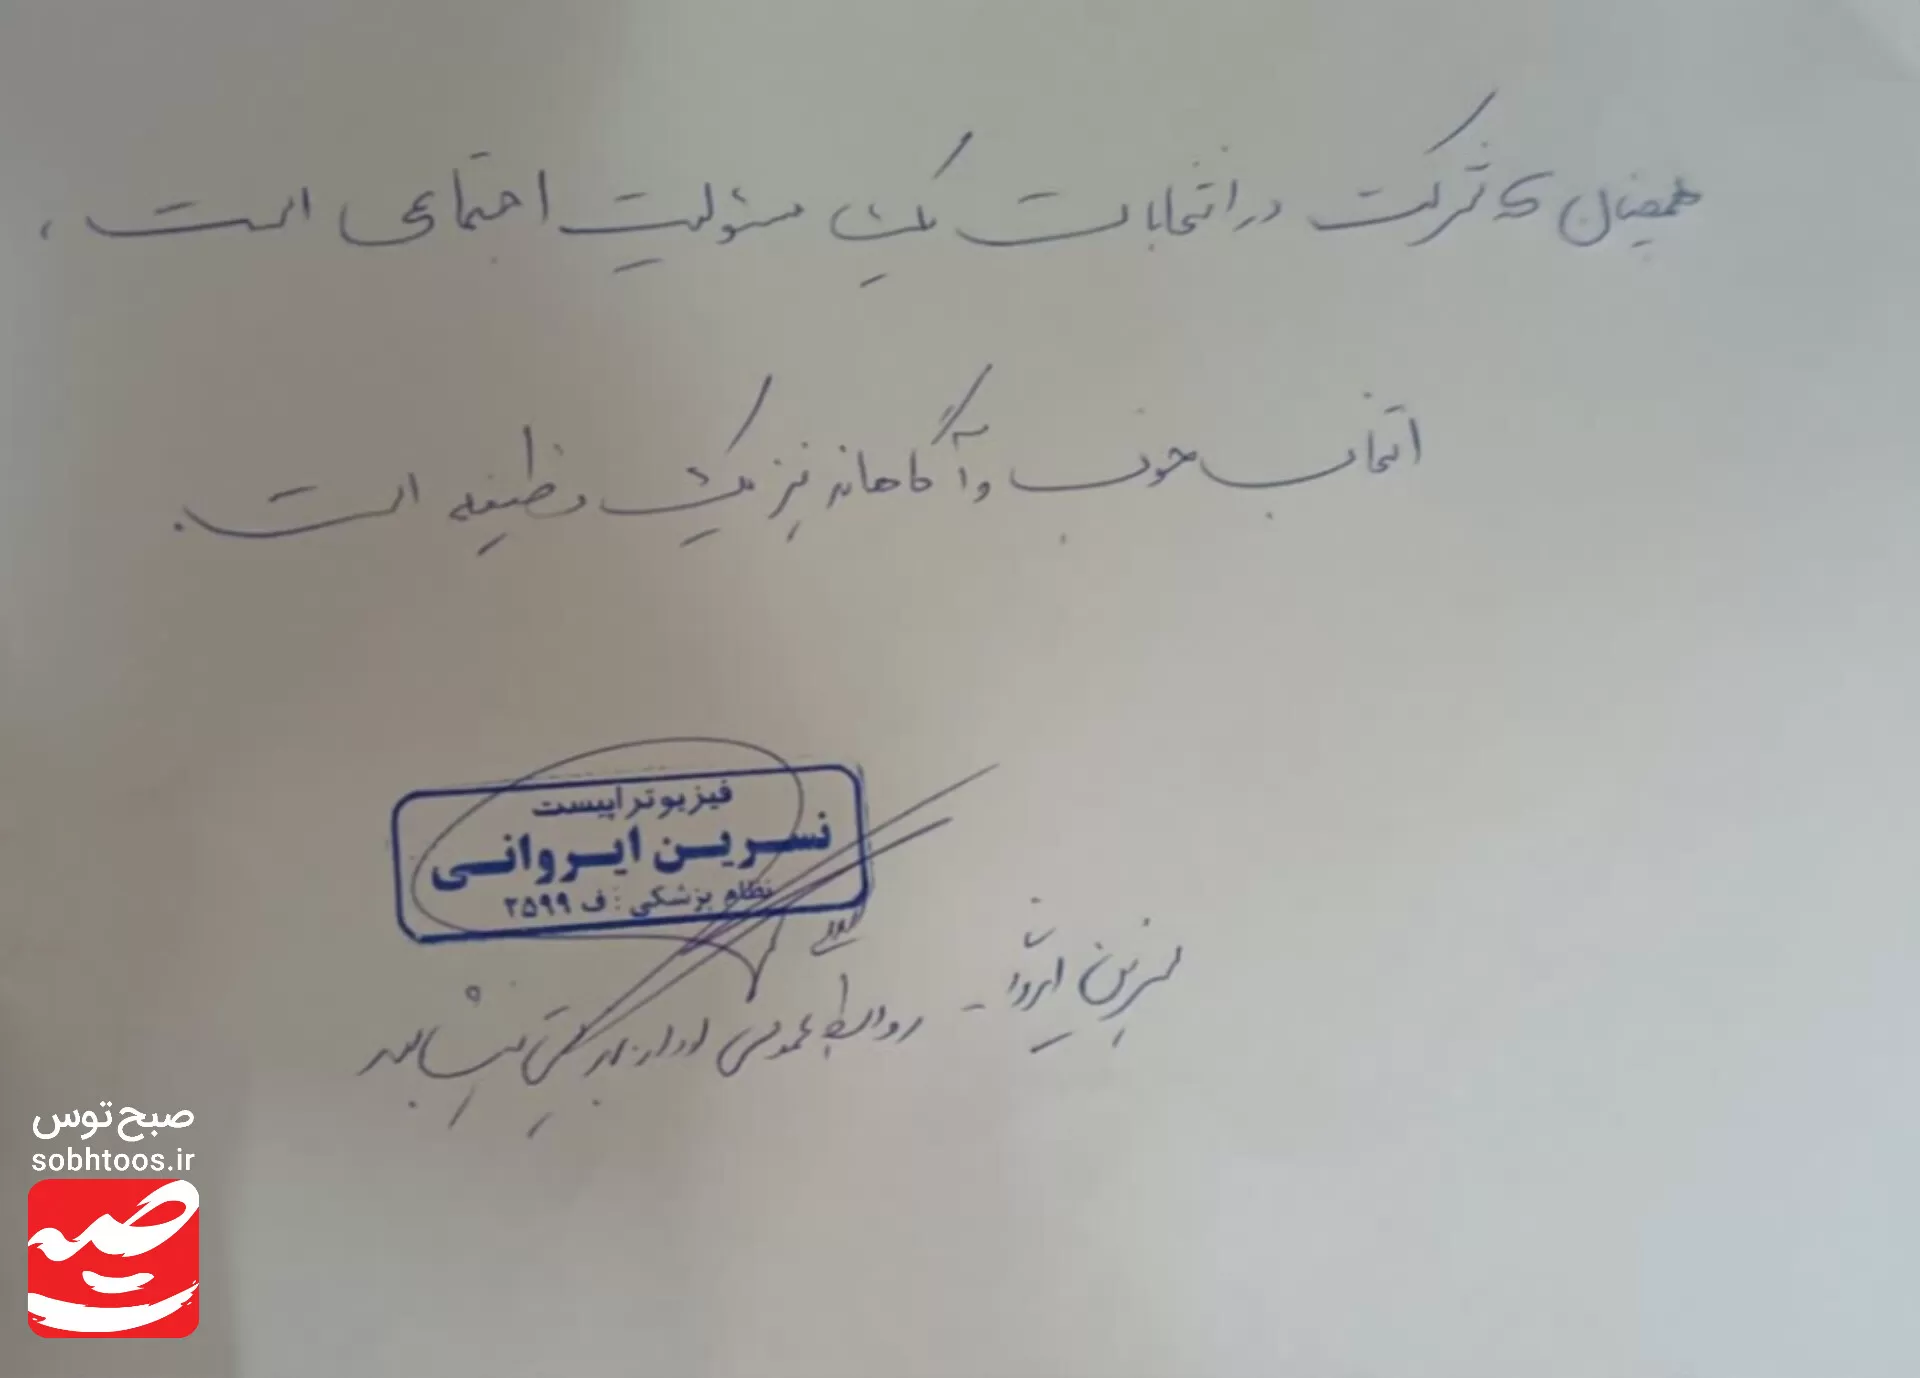 همچنان که شرکت در انتخابات یک مسئولیت اجتماعی است،
انتخاب خوب و آگاهانه نیز یک وظیفه است.
فیزیوتراپیست
نسرین ایروانی
نظام پزشکی : ف ۲۵۹۹
نسرین ایروانی - روابط عمومی
صبح توس
sobhtoos.ir